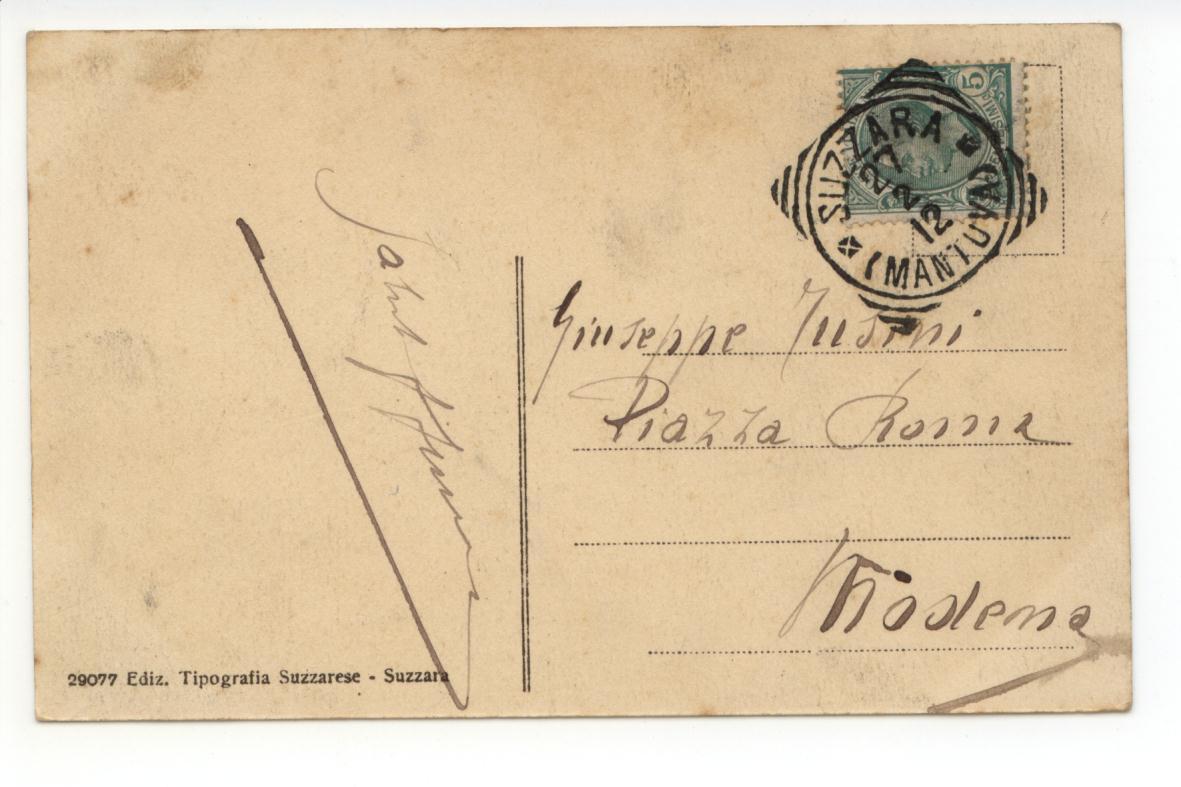 5
SUZZARA
27 2 12
(MANTOVA)
Giuseppe Tusini
Piazza Roma
Modena
29077 Ediz. Tipografia Suzzarese - Suzzara